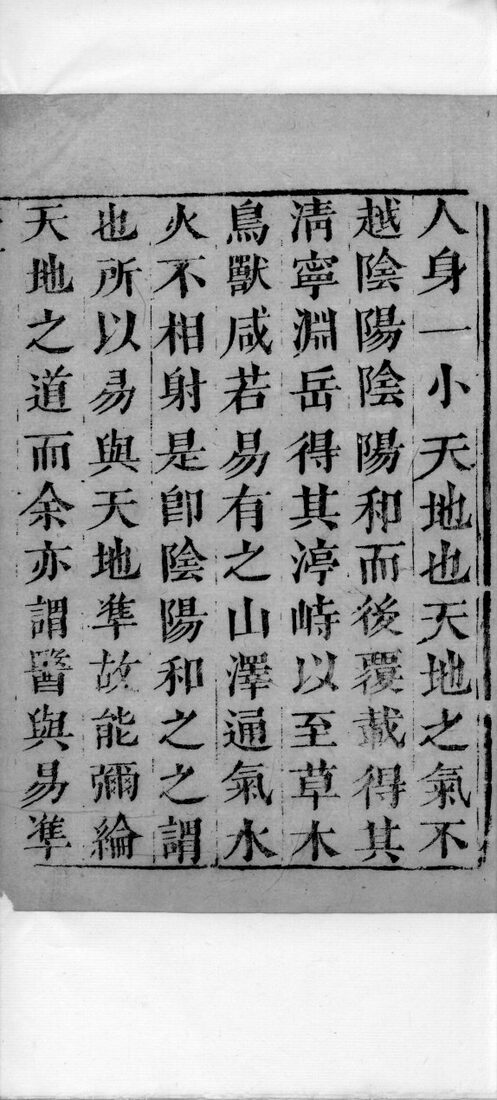 人身一小天地也天地之氣不
越陰陽陰陽和而後覆載得其
淸寧淵岳得其渟峙以至草木
鳥獸咸若易有之山澤通氣水
火不相射是卽陰陽和之之謂
也所以易與天地凖故能彌綸
天地之道而余亦謂醫與易凖